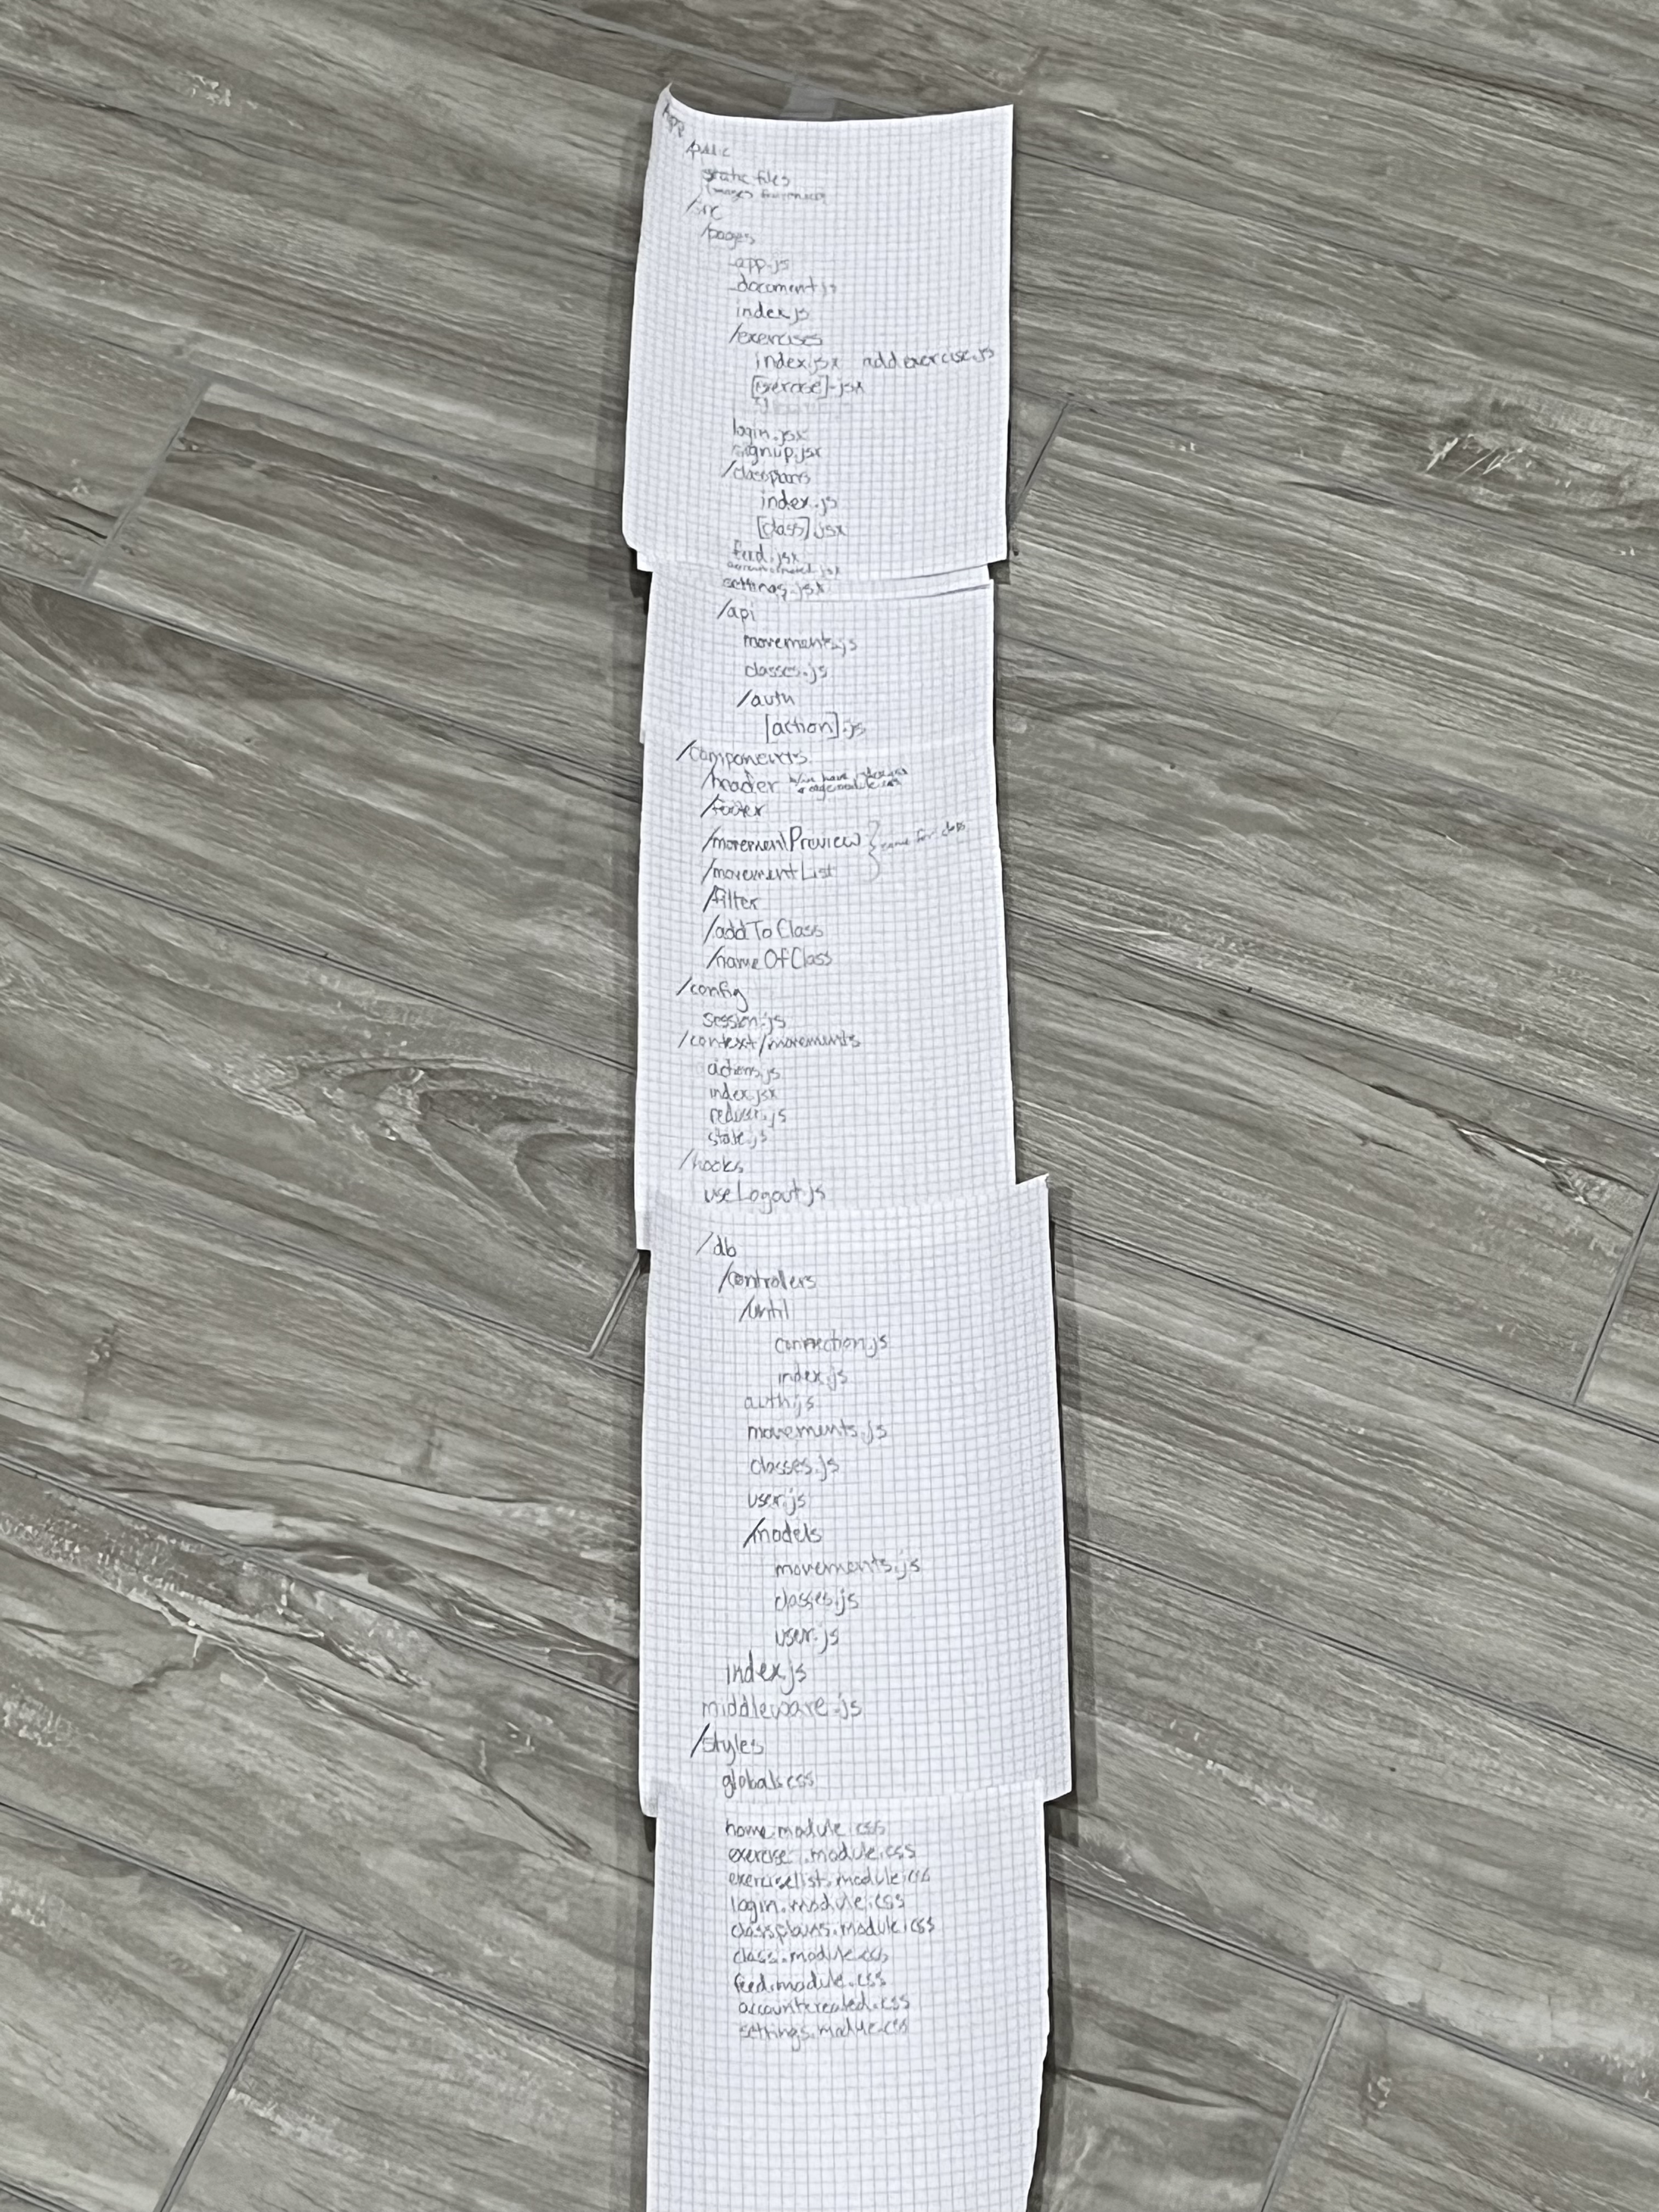 /app
/public
static files
images
/src
/pages
_app.js
_document.js
index.js
/exercises
index.jsx add exercise.js
[exercise].jsx
login.jsx
signup.jsx
/classplans
index.js
[class].jsx
feed.jsx
accountcreated.jsx
settings.jsx
/api
movements.js
classes.js
/auth
[action].js
/components
/header
/footer
/movementPreview } same for class
/movementList
/filter
/addToClass
/nameOfClass
/config
session.js
/context/movements
actions.js
index.jsx
reducer.js
state.js
/hooks
useLogout.js
/db
/controlers
/until
connection.js
index.js
auth.js
movements.js
classes.js
user.js
/models
movements.js
classes.js
user.js
index.js
middleware.js
/styles
globals.css
home.module.css
exercise.module.css
exerciselist.module.css
login.module.css
classplans.module.css
class.module.css
feed.module.css
accountcreated.css
settings.module.css